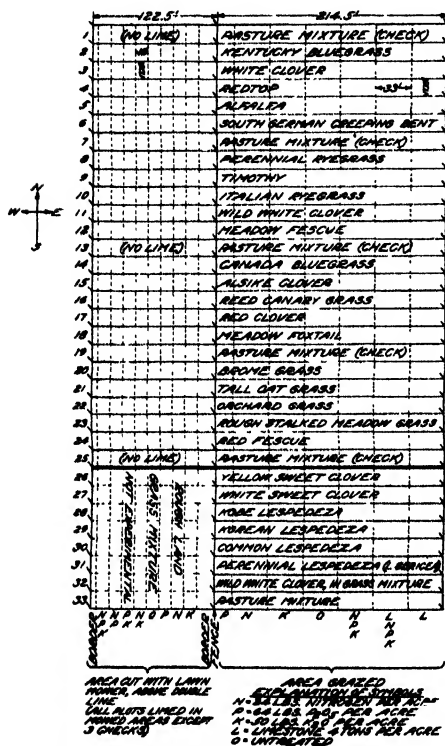 122.5' 214.5'
1 (NO LIME) PASTURE MIXTURE (CHECK)
2 KENTUCKY BLUEGRASS
3 WHITE CLOVER
4 REDTOP 33'
5 ALFALFA
6 SOUTH GERMAN CREEPING BENT
7 PASTURE MIXTURE (CHECK)
8 PERENNIAL RYEGRASS
9 TIMOTHY
N
10 ITALIAN RYEGRASS
W E 11 WILD WHITE CLOVER
12 MEADOW FESCUE
S
13 (NO LIME) PASTURE MIXTURE (CHECK)
14 CANADA BLUEGRASS
15 ALSIKE CLOVER
16 REED CANARY GRASS
17 RED CLOVER
18 MEADOW FOXTAIL
19 PASTURE MIXTURE (CHECK)
20 BROME GRASS
21 TALL OAT GRASS
22 ORCHARD GRASS
23 ROUGH STALKED MEADOW GRASS
24 RED FESCUE
25 (NO LIME) PASTURE MIXTURE (CHECK)
26 YELLOW SWEET CLOVER
27 WHITE SWEET CLOVER
28 KOBE LESPEDEZA
29 KOREAN LESPEDEZA
30 COMMON LESPEDEZA
31 PERENNIAL LESPEDEZA
32 WILD WHITE CLOVER, IN GRASS MIXTURE
33 PASTURE MIXTURE
GRASS MIXTURE
NOT EXPERIMENTAL
BORDER
BORDER
FENCE
P N K O NPK LNPK LN
AREA CUT WITH LAWN
MOWER, ABOVE DOUBLE
LINE
(ALL PLOTS LIMED IN
MOWED AREAS EXCEPT
3 CHECKS)
AREA GRAZED
EXPLANATION OF SYMBOLS
N = LBS. NITROGEN PER ACRE
P = 64 LBS. P2O5 PER ACRE
K = 50 LBS. K2O PER ACRE
L = LIMESTONE 4 TONS PER ACRE
O = UNTREATED